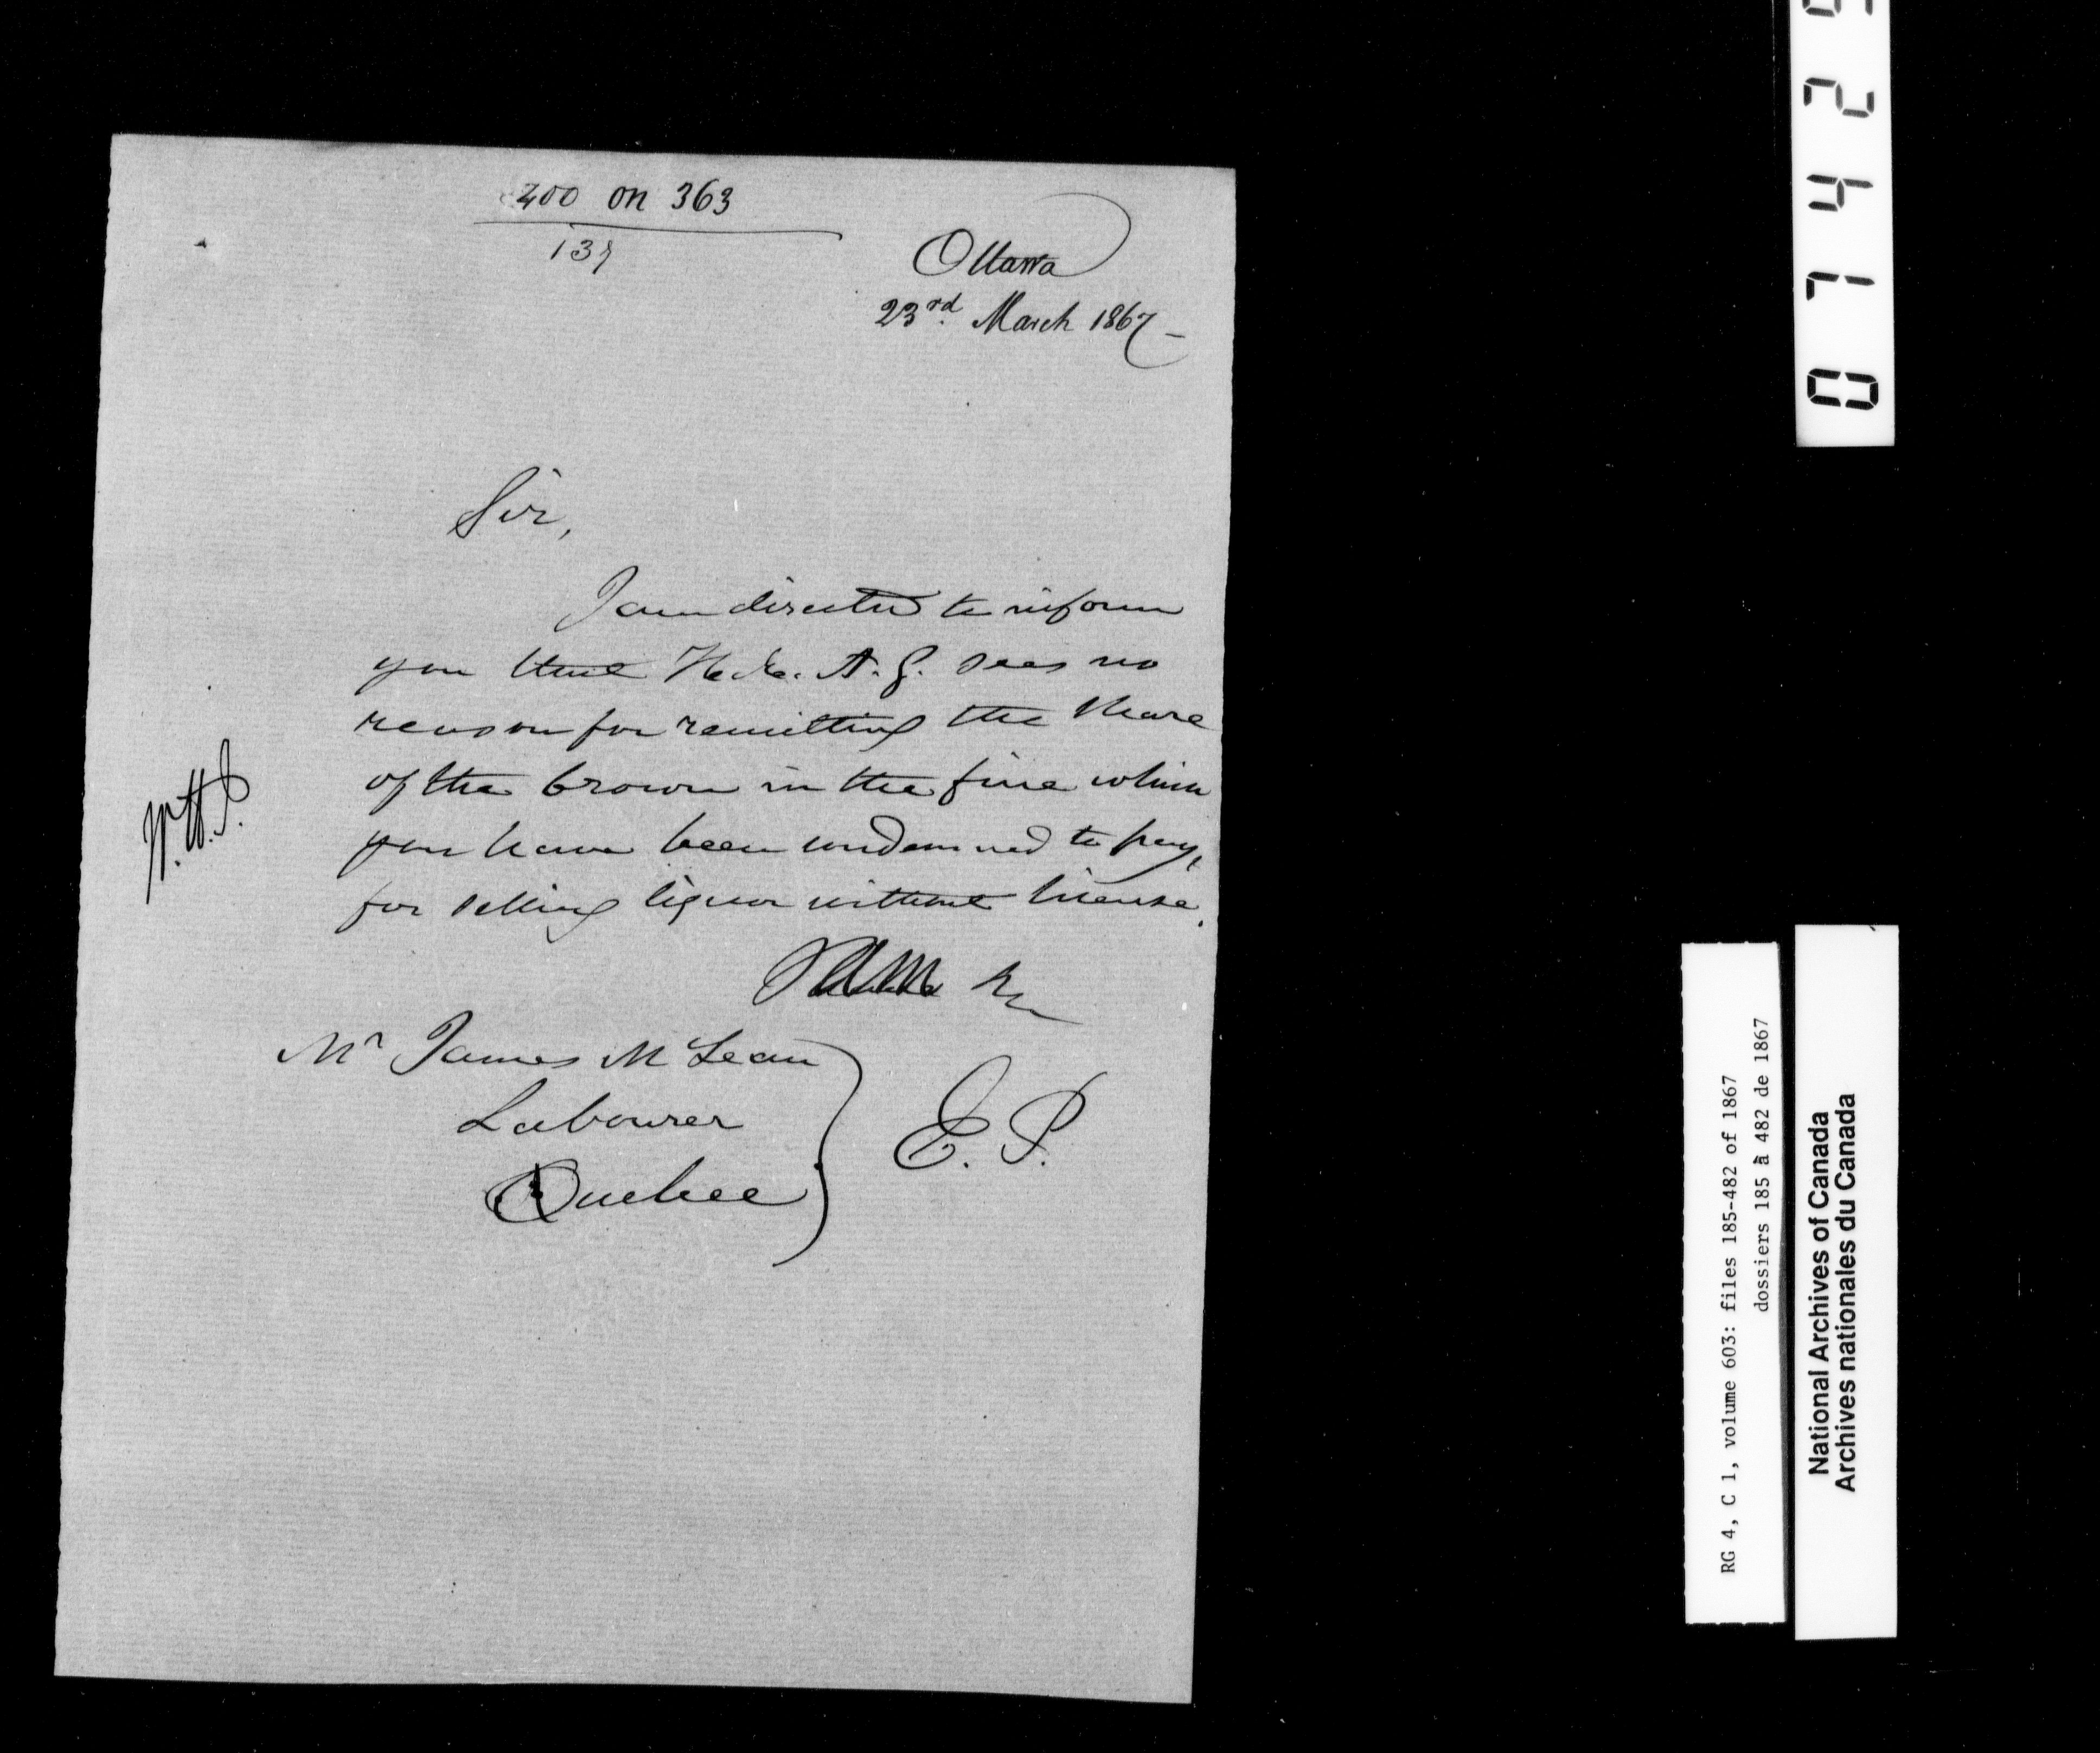 200 on 363
137
Ottawa
23rd. March 1867 -
Sir,
I am directed to inform
you that H. E. A. G. sees no
reason for remitting the share
of the Crown in the fine which
you have been condemned to pay,
for selling liquor without license.
Mr James McLean
Labourer
Quebec
E. P.
W.H.J.
0 7 4 2
RG 4, C 1, volume 603: files 185-482 of 1867
dossiers 185 à 482 de 1867
National Archives of Canada
Archives nationales du Canada